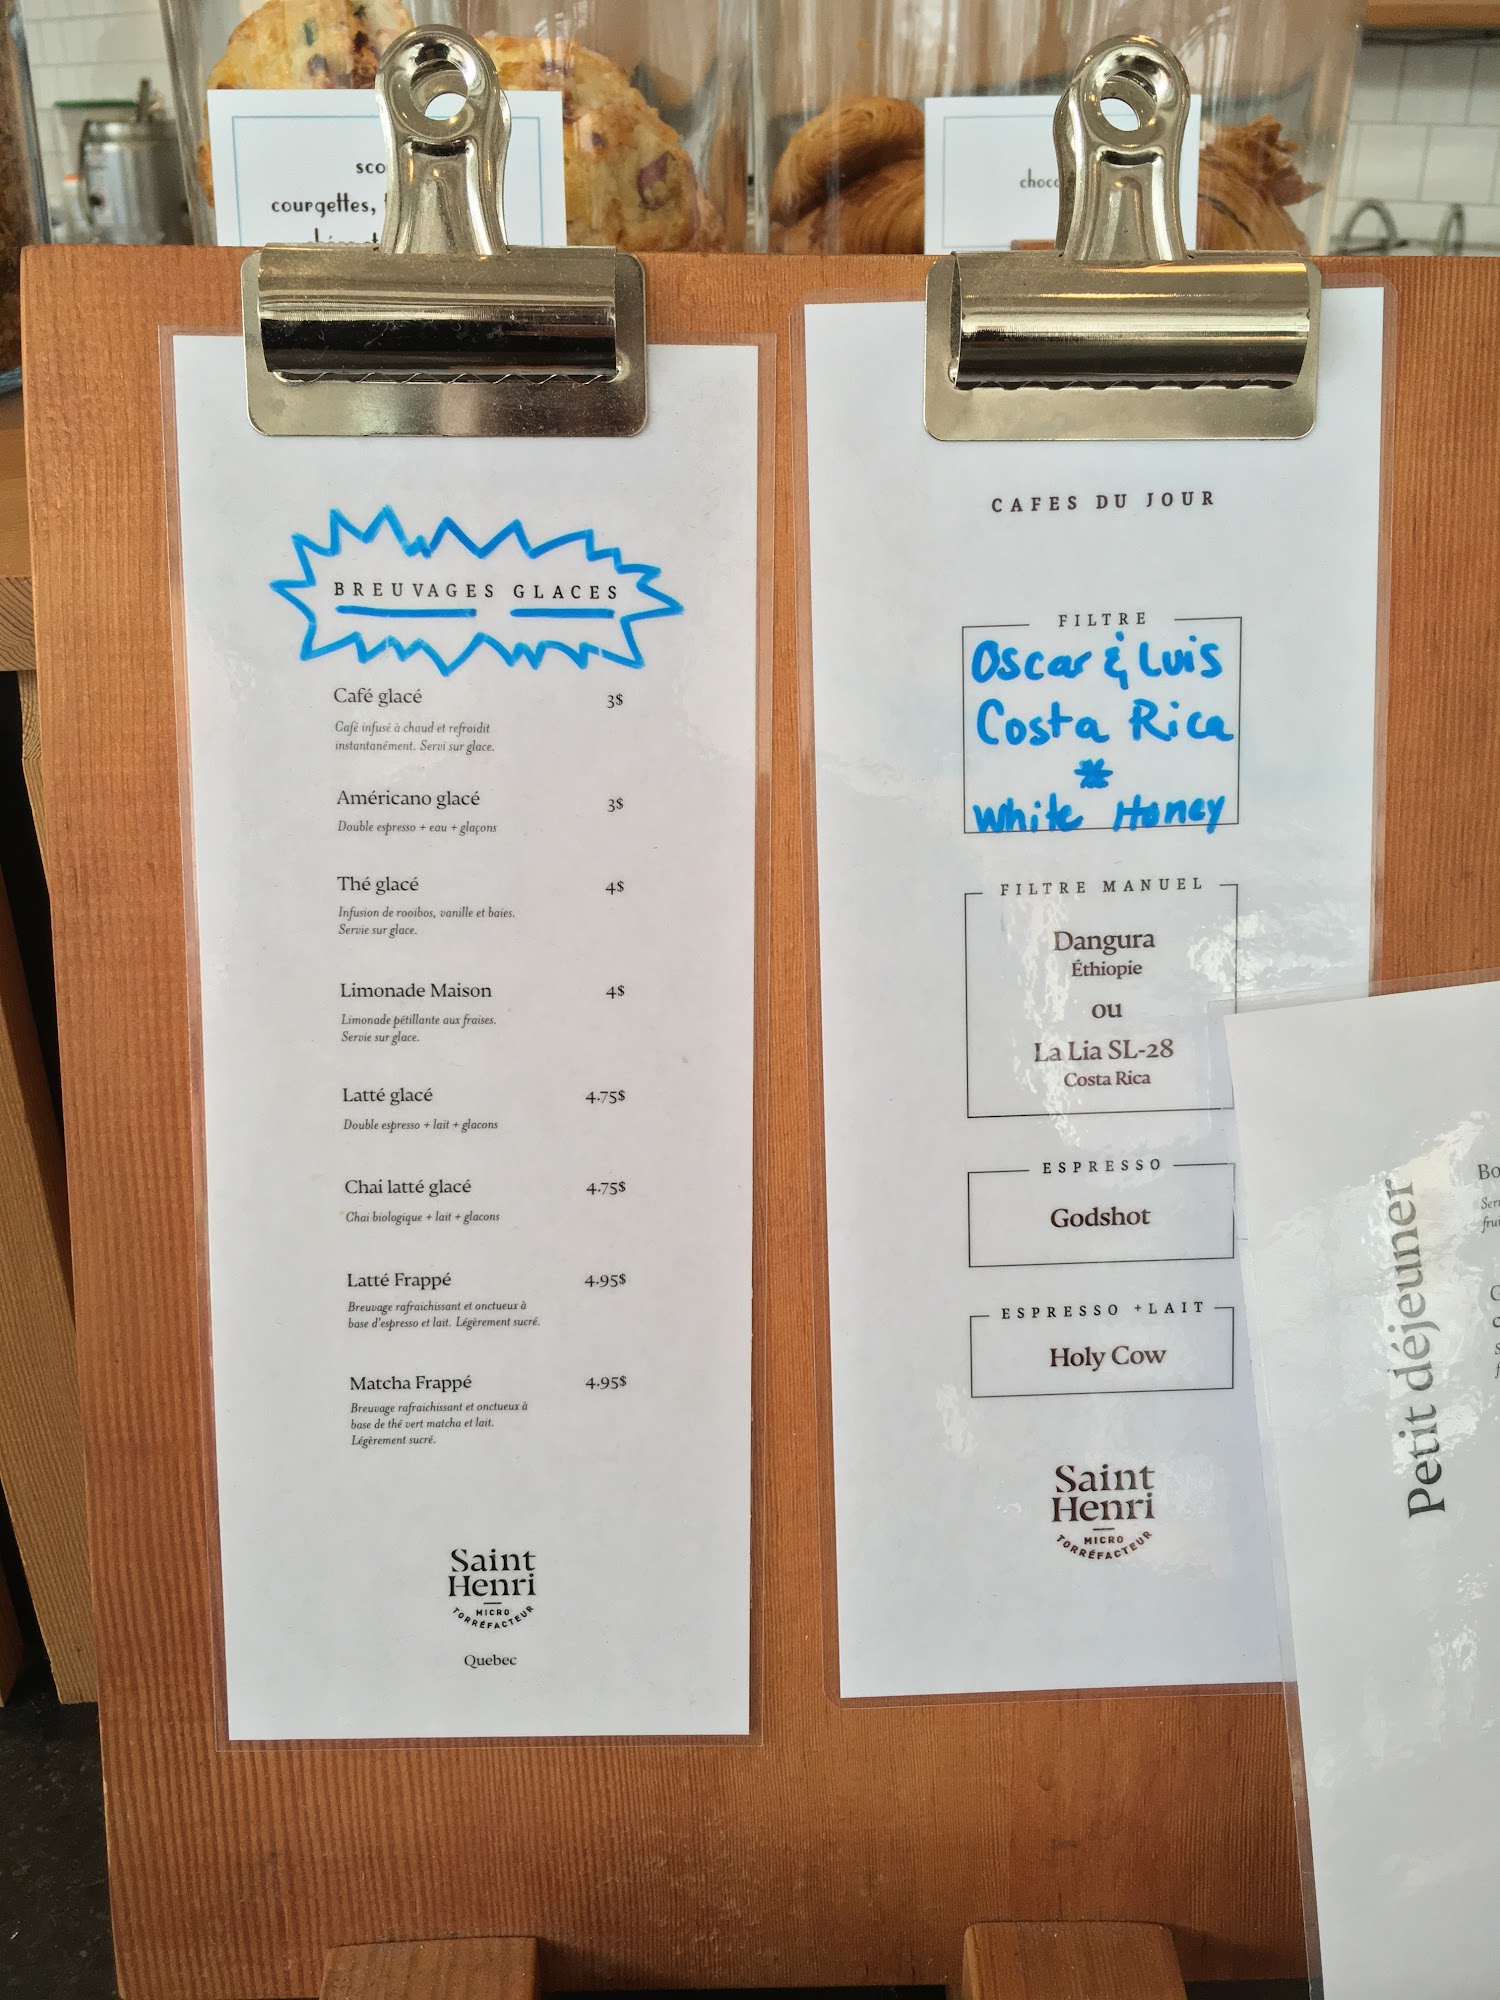 courgettes,
BREUVAGES GLACES
Café glacé 3$
Café infusé à chaud et refroidit
instantanément. Servi sur glace.
Américano glacé 3$
Double espresso + eau + glaçons
Thé glacé 4$
Infusion de rooibos, vanille et baies.
Servie sur glace.
Limonade Maison 4$
Limonade pétillante aux fraises.
Servie sur glace.
Latté glacé 4.75$
Double espresso + lait + glacons
Chai latté glacé 4.75$
Chai biologique + lait + glacons
Latté Frappé 4.95$
Breuvage rafraichissant et onctueux à
base d'espresso et lait. Légèrement sucré.
Matcha Frappé 4.95$
Breuvage rafraichissant et onctueux à
base de thé vert matcha et lait.
Légèrement sucré.
Saint
Henri
MICRO
TORRÉFACTEUR
Quebec
CAFES DU JOUR
FILTRE
Oscar & Luis
Costa Rica
*
White Honey
FILTRE MANUEL
Dangura
Éthiopie
ou
La Lia SL-28
Costa Rica
ESPRESSO
Godshot
ESPRESSO +LAIT
Holy Cow
Saint
Henri
MICRO
TORRÉFACTEUR
Petit déjeuner